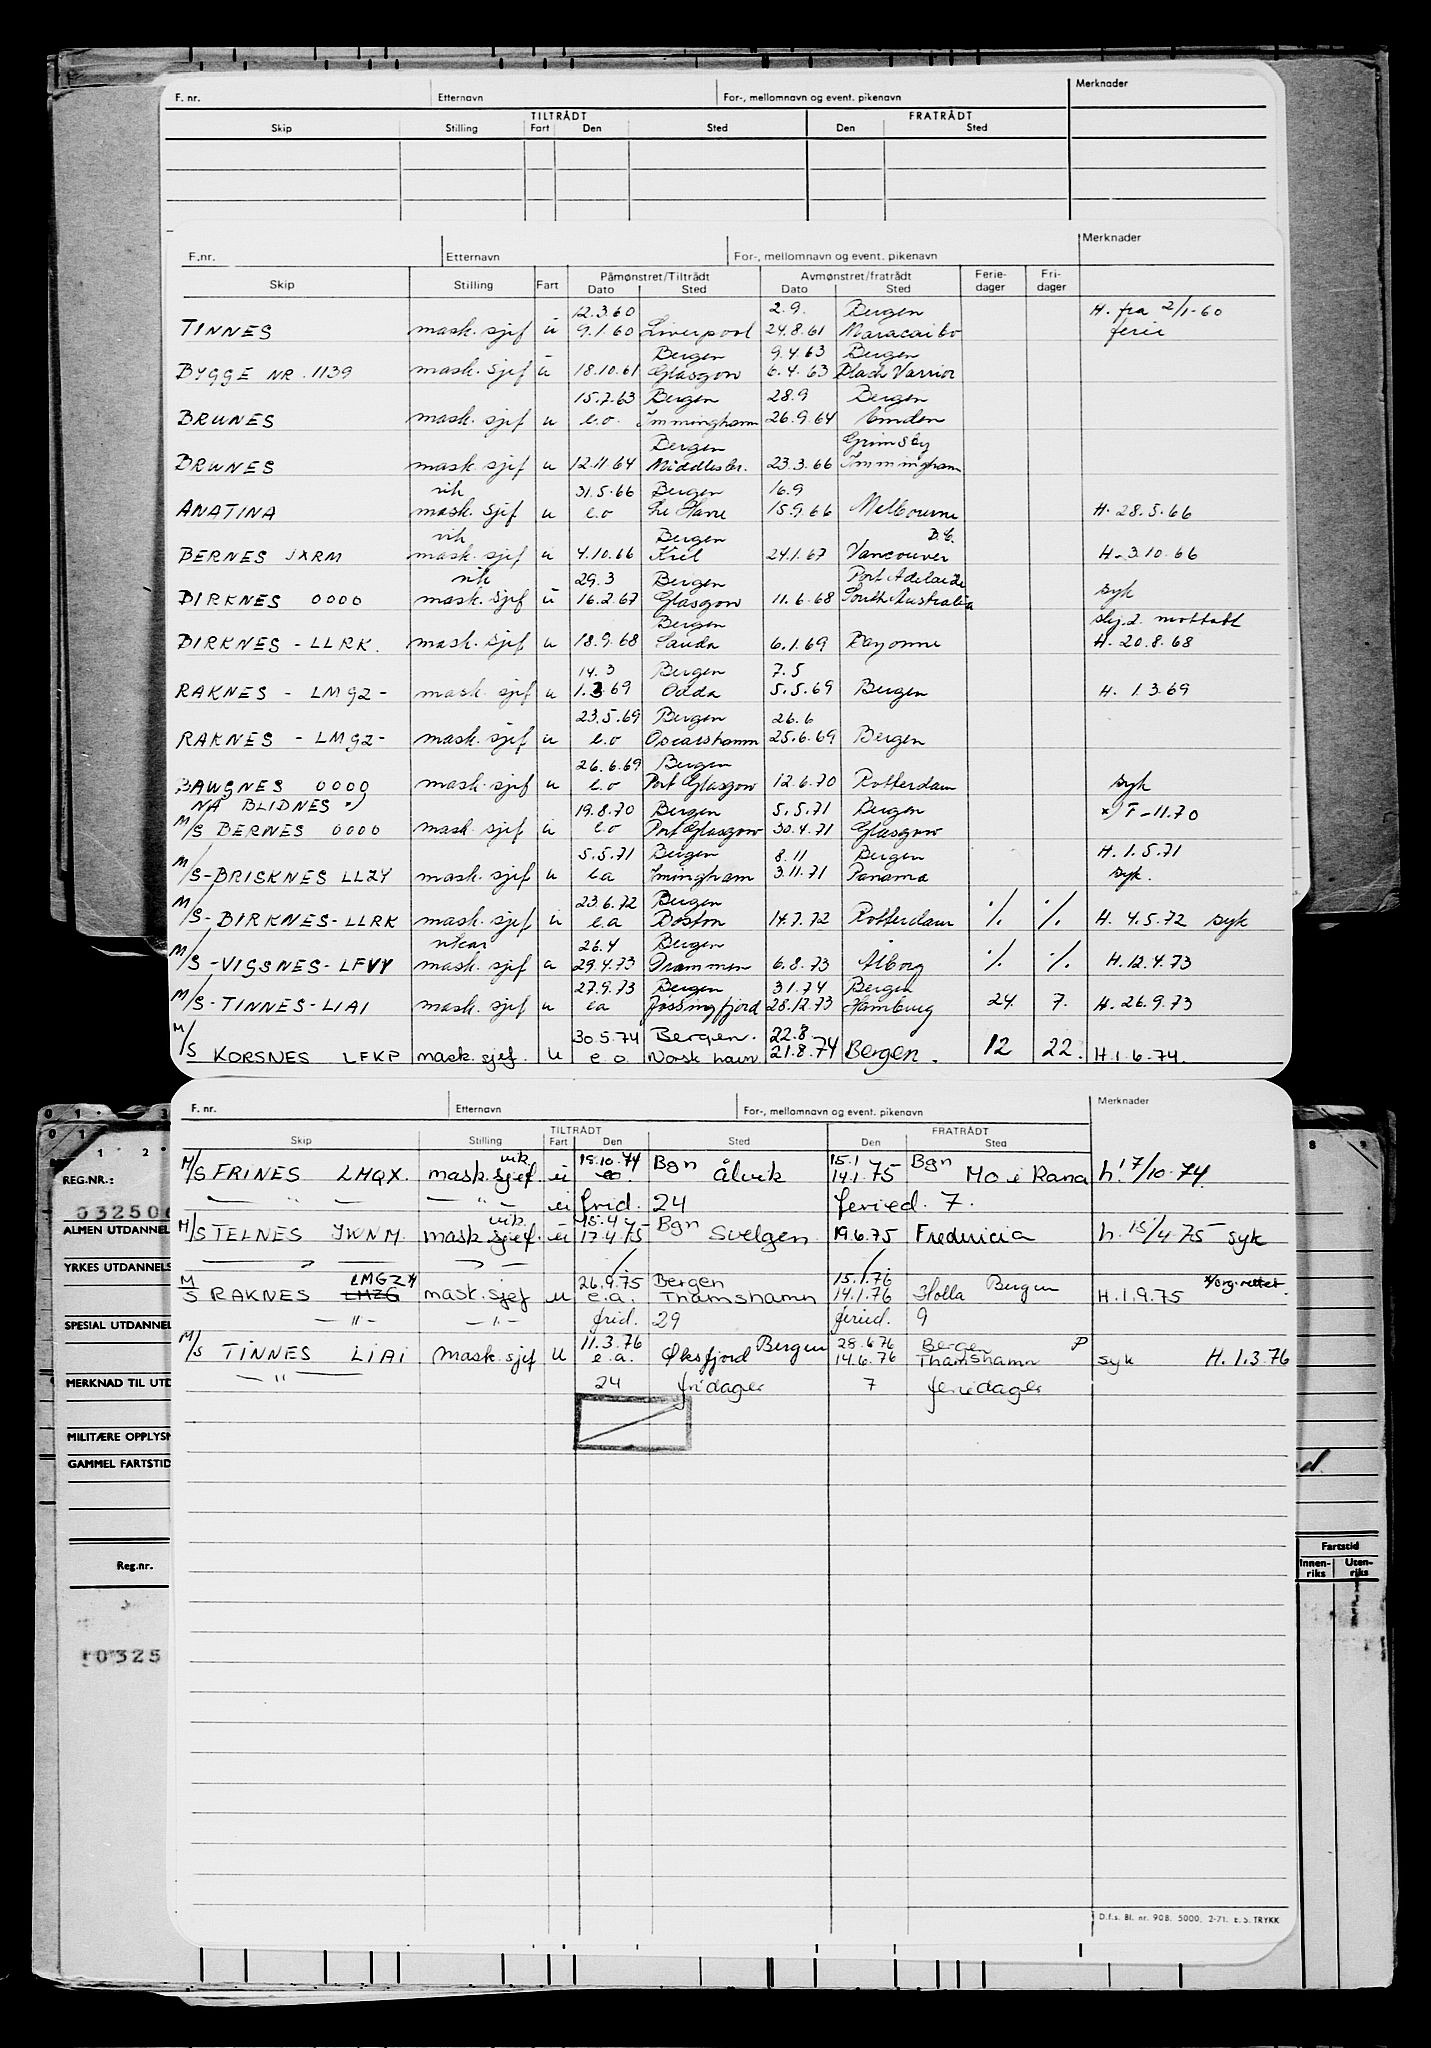 F. nr. Etternavn For-, mellomnavn og event. pikenavn Merknader
TILTRÅDT FRATRÅDT
Skip Stilling Fart Den Sted Den Sted
F.nr. Etternavn For-, mellomnavn og event. pikenavn Merknader
Påmønstret/Tiltrådt Avmønstret/fratrådt Ferie- Fri-
Skip Stilling Fart Dato Sted Dato Sted dager dager
12.3.60 2.9. Bergen H. fra 2/1-60
TINNES mask. sjef u 9.1.60 Liverpool 24.8.61 Maracaibo ferie
Bergen 9.4.63 Bergen
BYGGE NR. 1139 mask. sjef u 18.10.61 Glasgow 6.4.63 Black Varrior
15.7.63 Bergen 28.9 Bergen
BRUNES mask. sjef u e.o. Immingham 26.9.64 Emden
Bergen Grimsby
BRUNES mask. sjef u 12.11.64 Middlesbr. 23.3.66 Imminingham
vik 31.5.66 Bergen 16.9
ANATINA mask. sjef u e.o Le Havre 15.9.66 Melbourne H. 28.5.66
vik Bergen B.C.
BERNES JXRM mask. sjef u 4.10.66 Kiel 24.1.67 Vancouver H-3.10.66
vik 29.3 Bergen Port Adelaide
BIRKNES 0000 mask. sjef u 16.2.67 Glasgow 11.6.68 South Australia syk
Bergen skj.2. mottatt
BIRKNES - LLRK. mask. sjef u 18.9.68 Sauda 6.1.69 Bayonne H. 20.8.68
14.3 Bergen 7.5
RAKNES - LMGZ- mask. sjef u 1.3.69 Odda 5.5.69 Bergen H. 1.3.69
23.5.69 Bergen 26.6
RAKNES - LMGZ- mask. sjef u e.o Oscarshamn 25.6.69 Bergen
26.6.69 Bergen
BAUGNES 0000 mask. sjef u e.o Port Glasgow 12.6.70 Rotterdam syk
NÅ BLIDNES x) 19.8.70 Bergen 5.5.71 Bergen x) T-11.70
M/S BERNES 0000 mask. sjef u e.o Port Glasgow 30.4.71 Glasgow
5.5.71 Bergen 8.11 Bergen H. 1.5.71
M/S-BRISKNES LLZY mask. sjef u e.a Imingham 3.11.71 Panama syk.
23.6.72 Bergen
M/S-BIRKNES-LLRK mask. sjef u e.a Boston 14.7.72 Rotterdam ./. ./. H. 4.5.72 syk
vikar 26.4 Bergen
M/S-VIGSNES-LFVY mask. sjef u 29.4.73 Drammen 6.8.73 Ålborg ./. ./. H.12.4.73
27.9.73 Bergen 3.1.74 Bergen
M/S-TINNES-LIAI mask. sjef u ea Jøssingfjord 28.12.73 Hamburg 24 7. H. 26.9.73
30.5.74 Bergen. 22.8
M/S KORSNES LFKP mask. sjef. u e.o. Norsk havn 21.8.74 Bergen. 12 22. H.1.6.74.
F. nr. Etternavn For-, mellomnavn og event. pikenavn Merknader
TILTRÅDT FRATRÅDT
Skip Stilling Fart Den Sted Den Sted
vik. 19.10.74 Bgn 15.1 Bgn
M/S FRINES LHQX. mask. sjef. u eo Ålvik 14.1.75 Mo i Rana h. 17/10-74.
— " — — " — u frid. 24 feried. 7.
vik. 15.4 Bgn
M/S TELNES JWNM. mask. sjef. u 17.4.75 Svelgen 19.6.75 Fredericia h. 15/4 75 syk
LMGZ x) 26.9.75 Bergen 15.1.76 Bergen x) org. rettet
M/S RAKNES LMZG mask. sjef u e.a. Thamshamn 14.1.76 Holla H.1.9.75
— " — — " — frid. 29 feried. 9
11.3.76 Bergen 28.6.76 Bergen P
M/S TINNES LIAI mask. sjef u e.a. Øksfjord 14.6.76 Thamshamn syk H.1.3.76
— " — 24 fridager 7 feriedager
REG.NR.:
032506
ALMEN UTDANNEL
YRKES UTDANNELS
SPESIAL UTDANNEL
MERKNAD TIL UTD
MILITÆRE OPPLYSN
GAMMEL FARTSTID
Reg.nr.
Fartstid
Innen- Uten-
riks riks
10325
D.f.s. Bl. nr. 908. 5000. 2-71. E.S. TRYKK